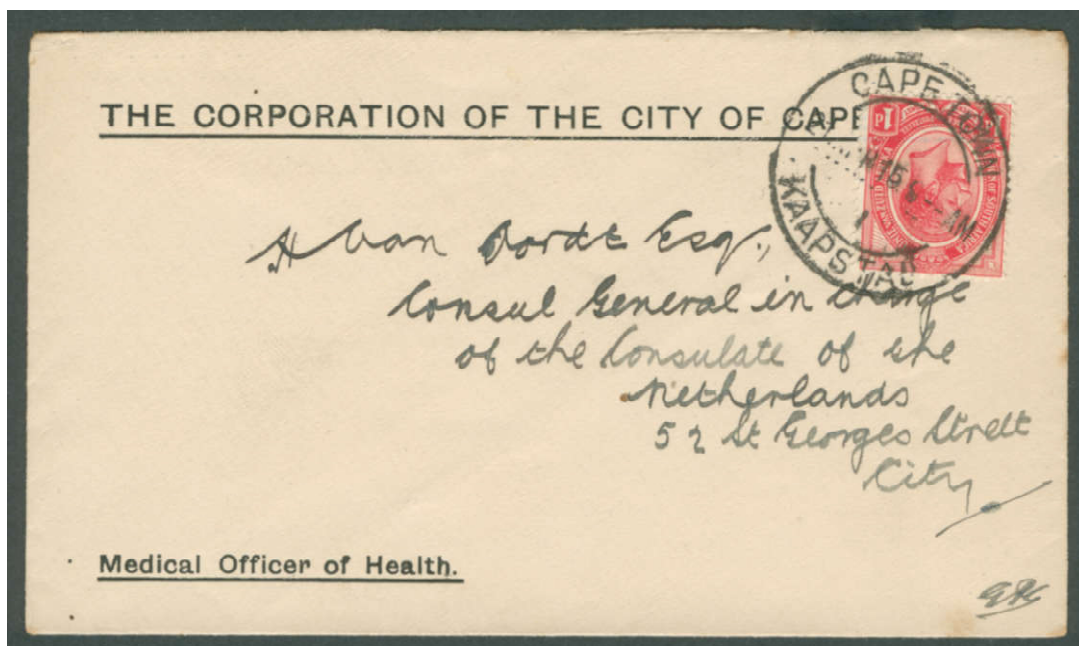 THE CORPORATION OF THE CITY OF CAPE
CAPE TOWN
15
AM
KAAPSTAD
1 P
OF SOUTH AFRICA
H van Oordt Esq.,
Consul General in charge
of the Consulate of the
Netherlands
52 St Georges Street
City
Medical Officer of Health.